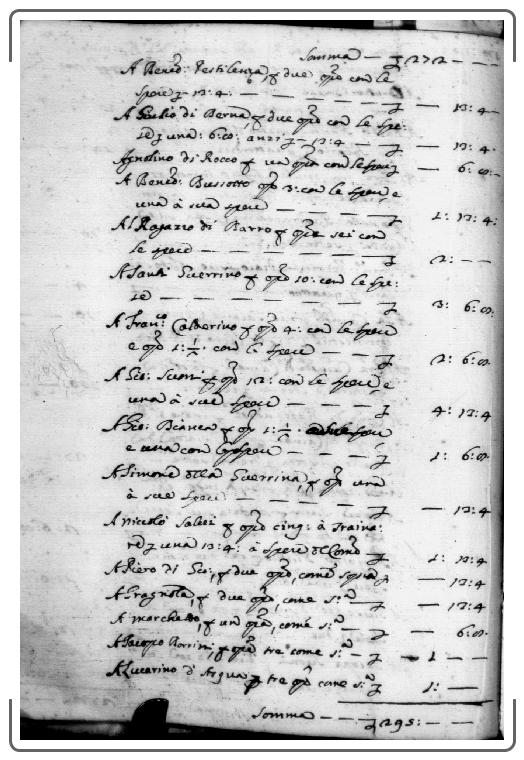 Somma — ʒ 272 — —
A Bened: Pestilenza, p due opre con le
spese ʒ — 13: 4: — ʒ — 13: 4 —
A Giulio di Berna, p due opre con le spe:
se ʒ una: 6: 8: anzi ʒ — 13 — 4 — ʒ — 13: 4 ·
Agnolino di Rocco p un opra con le spese ʒ — 6: 8: —
A Bened: Bussotto opre 3: con le spese, e
una à sue spese — ʒ 1: 13: 4:
Al Ragazzo di Barro p opre sei con
le spese — ʒ 2: — —
A Santi Guerrino p opre 10: con le spe:
se — ʒ 3: 6: 8:
A Fran:co Calderino p opre 4: con le spese
e opre 1: ½ · con le spese — ʒ 2: 6: 8:
A Gio: p opre 12: con le spese, e
una à sue spese — ʒ 4: 13: 4
A Gio: Bianca p opre 1: ½ · spese
e una con le spese — ʒ 1: 6: 8:
A Simone della Guerrina, p opre una
à sue spese — ʒ — 13: 4
A Niccolò p opre cinq: à
ʒ una 13: 4: à spese del Com̃o — ʒ 1: 13: 4
A Piero di Gio:, p due opre, come sopra ʒ — 13: 4
A Fragnola, p due opre, come s:a — ʒ — 13: 4
A Marchetto, p un opra, come s:a — ʒ — 6: 8:
A Jacopo Borrini, p opre tre come s:a — ʒ — 1 — —
A Lucarino d'Acqua p tre opre come s:a ʒ 1: —
Somma — — — ʒ 295: — —